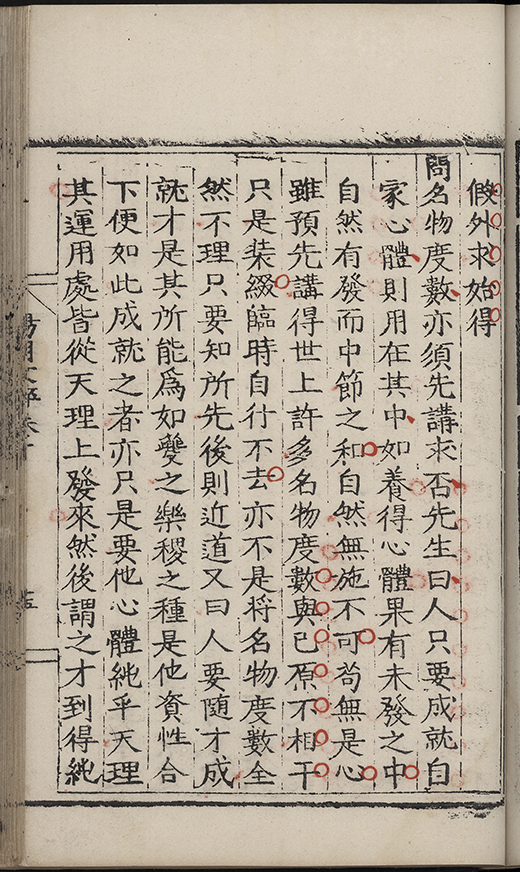 假外求始得
問名物度數亦須先講求否先生曰人只要成就自
家心體則用在其中如養得心體果有未發之中
自然有發而中節之和自然無施不可苟無是心
雖預先講得世上許多名物度數與己原不相干
只是装綴臨時自行不去亦不是将名物度數全
然不理只要知所先後則近道又曰人要随才成
就才是其所能爲如夔之樂稷之種是他資性合
下便如此成就之者亦只是要他心體純乎天理
其運用處皆從天理上發來然後謂之才到得純